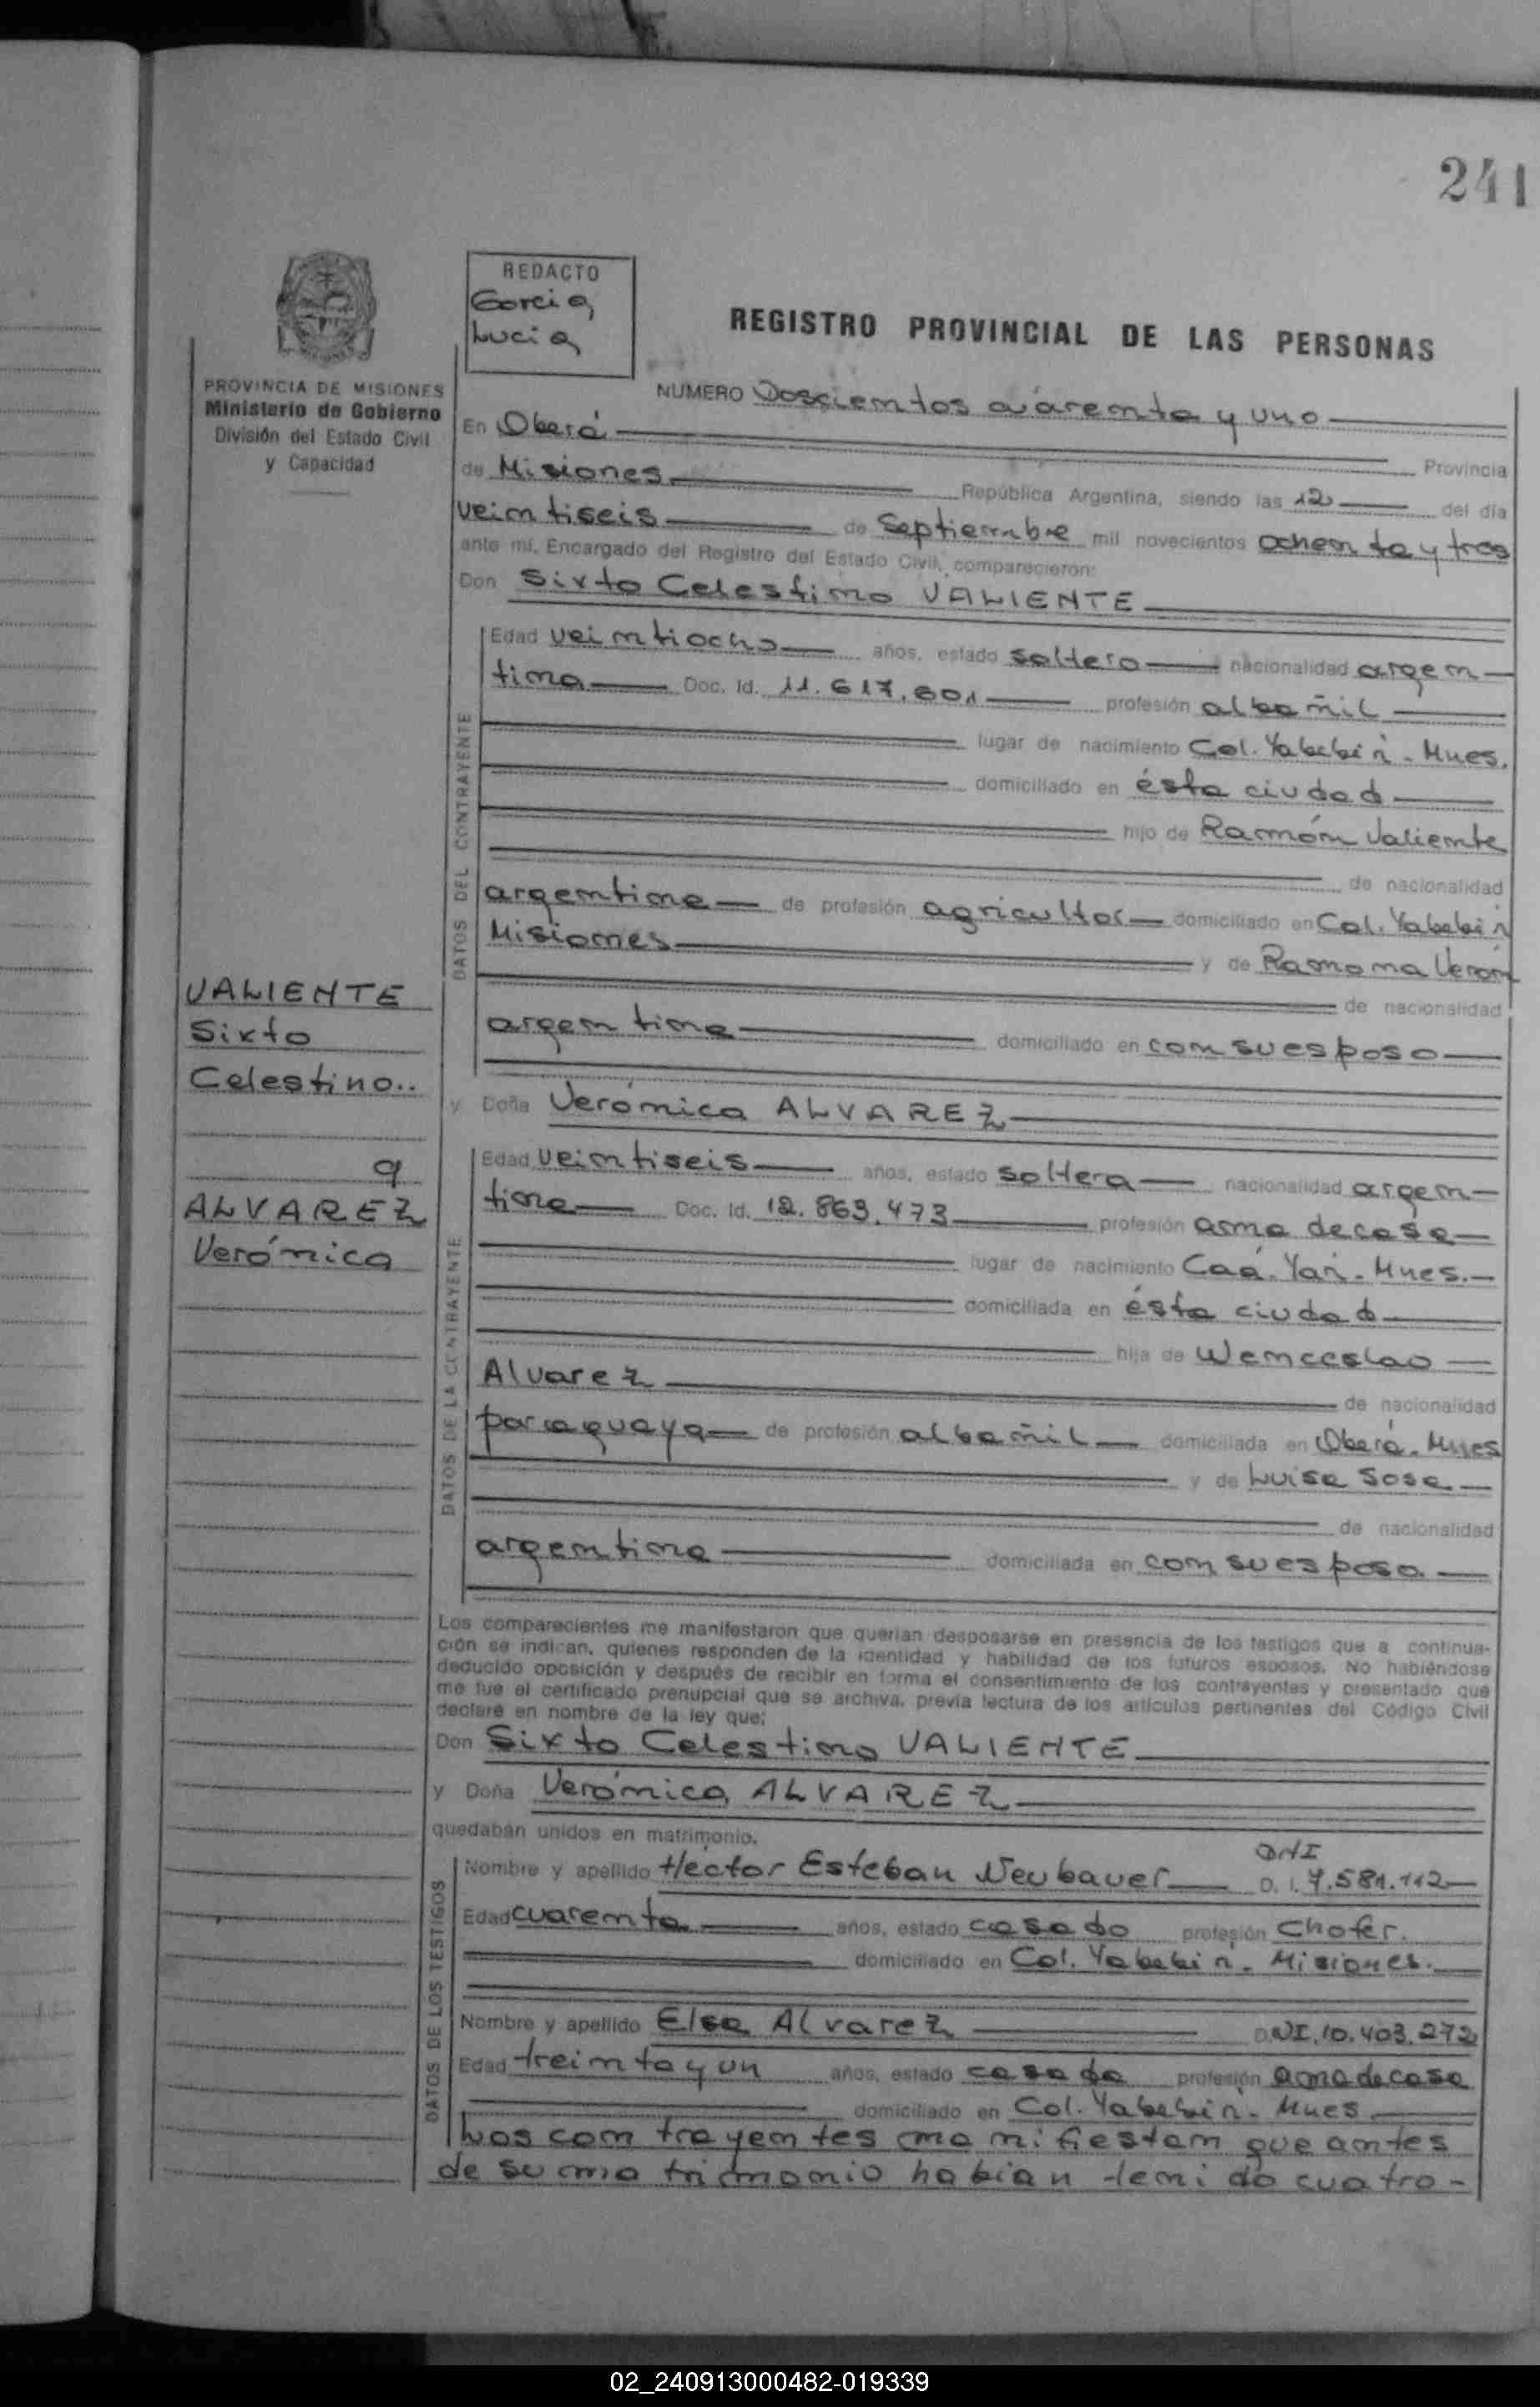 241
REDACTO
Garcia
Lucia
REGISTRO PROVINCIAL DE LAS PERSONAS
PROVINCIA DE MISIONES
Ministerio de Gobierno
División del Estado Civil
y Capacidad
NUMERO Doscientos cuarenta y uno
En Oberá Provincia
de Misiones República Argentina, siendo las 12 del día
veintiseis de Septiembre mil novecientos ochenta y tres
ante mí, Encargado del Registro del Estado Civil, comparecieron:
Don Sixto Celestino VALIENTE
DATOS DEL CONTRAYENTE
Edad veintiocho años, estado soltero nacionalidad argen
tina Doc. Id. 11.617.601 profesión albañil
lugar de nacimiento Col. Yabebiri - Mnes.
domiciliado en ésta ciudad
hijo de Ramón Valiente
de nacionalidad
argentina de profesión agricultor domiciliado en Col. Yabebiri
Misiones y de Ramona Verón
de nacionalidad
argentina domiciliado en con su esposo
VALIENTE
Sixto
Celestino..
q
ALVAREZ
Verónica
y Doña Verónica ALVAREZ
DATOS DE LA CONTRAYENTE
Edad veintiseis años, estado soltera nacionalidad argen
tina Doc. Id. 12.863.473 profesión ama de casa
lugar de nacimiento Caá-Yari - Mnes.
domiciliada en ésta ciudad
hija de Wenceslao
Alvarez de nacionalidad
paraguaya de profesión albañil domiciliada en Oberá - Mnes
y de Luisa Sosa
de nacionalidad
argentina domiciliada en con su esposo.
Los comparecientes me manifestaron que querían desposarse en presencia de los testigos que a continua-
ción se indican, quienes responden de la identidad y habilidad de los futuros esposos. No habiéndose
deducido oposición y después de recibir en forma el consentimiento de los contrayentes y presentado que
me fue el certificado prenupcial que se archiva, previa lectura de los artículos pertinentes del Código Civil
declaré en nombre de la ley que:
Don Sixto Celestino VALIENTE
y Doña Verónica ALVAREZ
quedaban unidos en matrimonio.
DATOS DE LOS TESTIGOS
DNI
Nombre y apellido Héctor Esteban Neubauer D. I. 7.581.112
Edad cuarenta años, estado casado profesión Chofer.
domiciliado en Col. Yabebiri - Misiones.
Nombre y apellido Elsa Alvarez DNI. 10.403.272
Edad treinta y un años, estado casada profesión ama de casa
domiciliado en Col. Yabebiri - Mnes
Los contrayentes manifiestan que antes
de su matrimonio habian tenido cuatro -
02_240913000482-019339